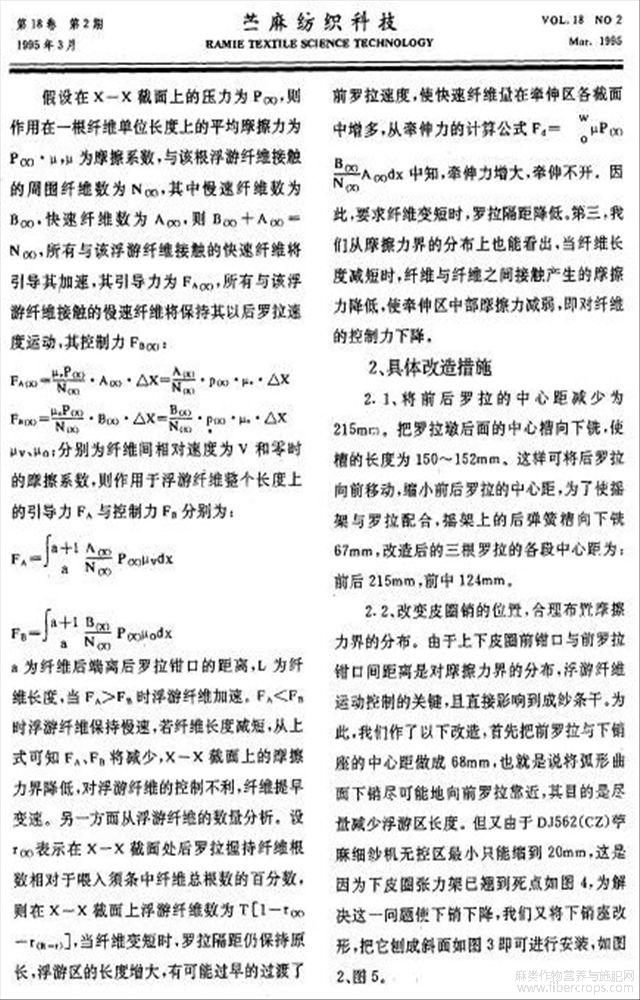 第18卷 第2期
1995年3月
苎麻纺织科技
RAMIE TEXTILE SCIENCE TECHNOLOGY
VOL.18 NO 2
Mar. 1995
假设在X—X截面上的压力为P(X),则
作用在一根纤维单位长度上的平均摩擦力为
P(X)·μ,μ为摩擦系数,与该根浮游纤维接触
的周围纤维数为N(X),其中慢速纤维数为
B(X),快速纤维数为A(X),则B(X)+A(X)=
N(X),所有与该浮游纤维接触的快速纤维将
引导其加速,其引导力为FA(X),所有与该浮
游纤维接触的慢速纤维将保持其以后罗拉速
度运动,其控制力FB(X):
FA(X)=μ.P(X)/N(X)·A(X)·△X=A(X)/N(X)·p(X)·μ.·△X
FB(X)=μ.P(X)/N(X)·B(X)·△X=B(X)/N(X)·p(X)·μ.·△X
μV、μ0:分别为纤维间相对速度为V和零时
的摩擦系数,则作用于浮游纤维整个长度上
的引导力FA与控制力FB分别为:
FA=∫a+1 a A(X)/N(X) P(X)μVdx
FB=∫a+1 a B(X)/N(X) P(X)μ0dx
a为纤维后端离后罗拉钳口的距离,L为纤
维长度,当FA>FB时浮游纤维加速。FA<FB
时浮游纤维保持慢速,若纤维长度减短,从上
式可知FA、FB将减少,X—X截面上的摩擦
力界降低,对浮游纤维的控制不利,纤维提早
变速。另一方面从浮游纤维的数量分析。设
r(X)表示在X—X截面处后罗拉握持纤维根
数相对于喂入须条中纤维总根数的百分数,
则在X—X截面上浮游纤维数为T[1-r(X)
-r(R-r)],当纤维变短时,罗拉隔距仍保持原
长,浮游区的长度增大,有可能过早的过渡了
前罗拉速度,使快速纤维量在牵伸区各截面
中增多,从牵伸力的计算公式Fd= w o μP(X)
B(X)/N(X) A(X)dx中知,牵伸力增大,牵伸不开。因
此,要求纤维变短时,罗拉隔距降低。第三,我
们从摩擦力界的分布上也能看出,当纤维长
度减短时,纤维与纤维之间接触产生的摩擦
力降低,使牵伸区中部摩擦力减弱,即对纤维
的控制力下降。
2、具体改造措施
2.1、将前后罗拉的中心距减少为
215mm。把罗拉墩后面的中心槽向下铣,使
槽的长度为150~152mm。这样可将后罗拉
向前移动,缩小前后罗拉的中心距,为了使摇
架与罗拉配合,摇架上的后弹簧槽向下铣
67mm,改造后的三根罗拉的各段中心距为:
前后215mm,前中124mm。
2.2、改变皮圈销的位置,合理布置摩擦
力界的分布。由于上下皮圈前钳口与前罗拉
钳口间距离是对摩擦力界的分布,浮游纤维
运动控制的关键,且直接影响到成纱条干。为
此,我们作了以下改造,首先把前罗拉与下销
座的中心距做成68mm,也就是说将弧形曲
面下销尽可能地向前罗拉靠近,其目的是尽
量减少浮游区长度。但又由于DJ562(CZ)苧
麻细纱机无控区最小只能缩到20mm,这是
因为下皮圈张力架已翘到死点如图4,为解
决这一问题使下销下降,我们又将下销座改
形,把它刨成斜面如图3即可进行安装,如图
2、图5。
麻类作物营养与施肥网
www.fibercrops.com